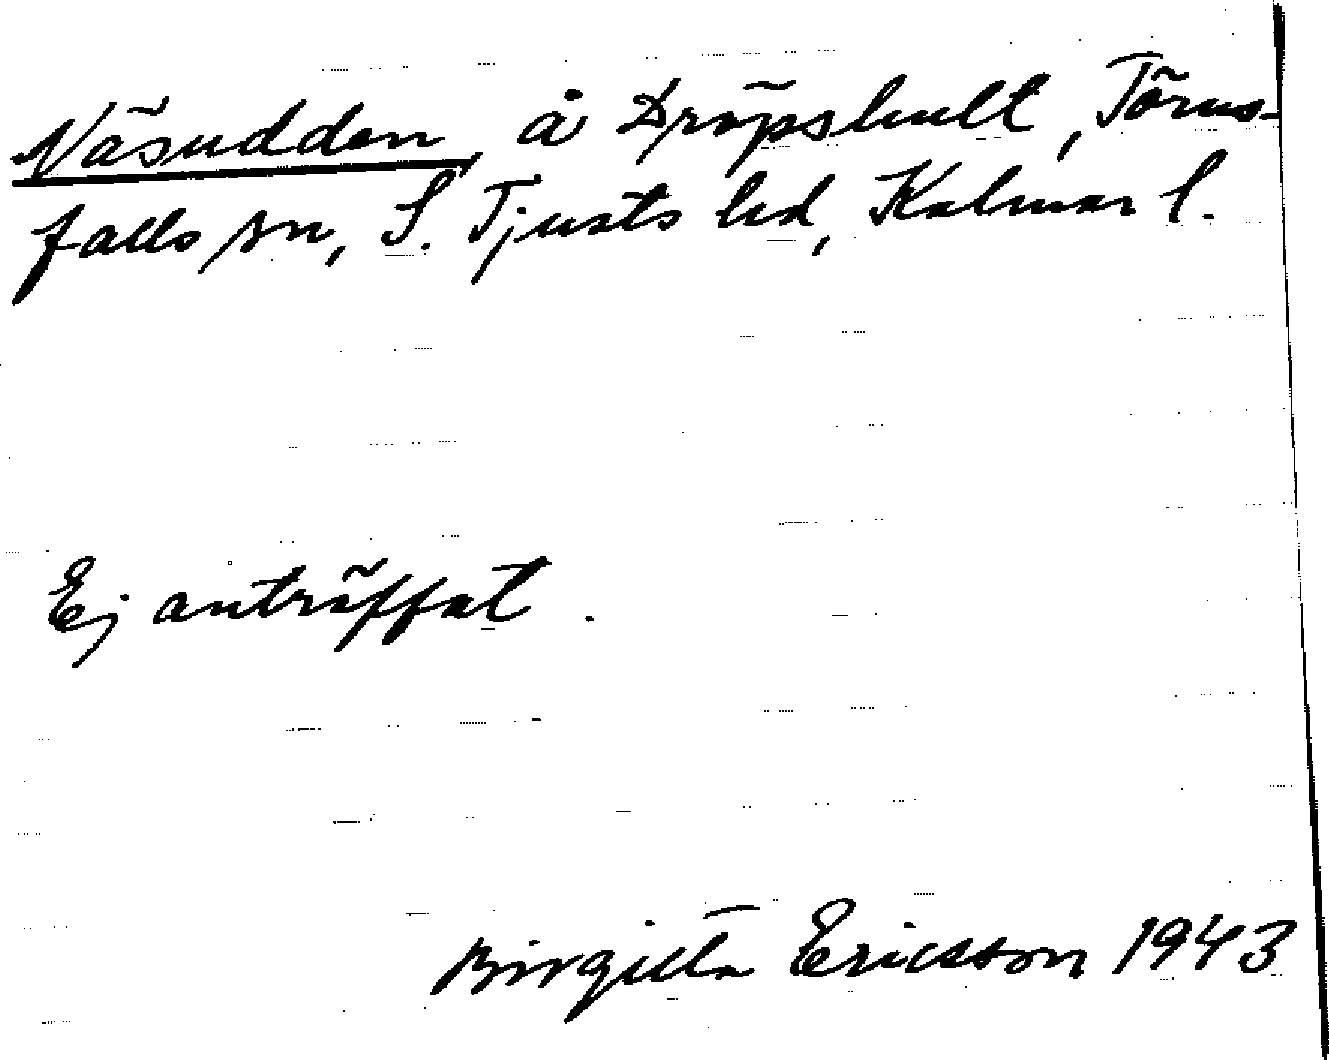 Näsudden, å Dröpshult, Törns-
falls sn, S. Tjusts hd, Kalmar l.
Ej anträffat.
Birgitta Ericsson 1943